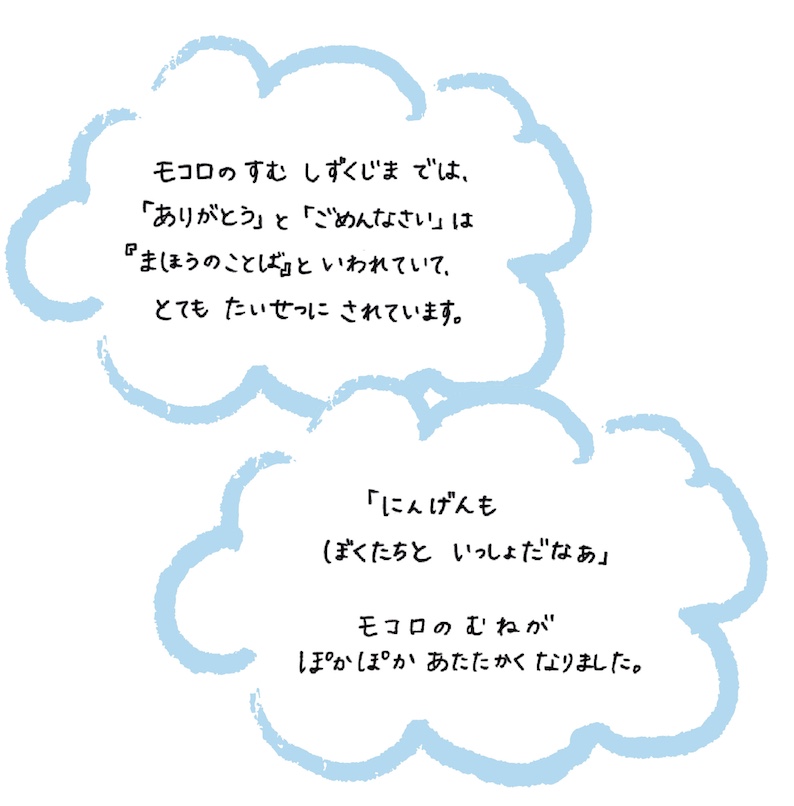 モコロの すむ しずくじま では、
「ありがとう」と「ごめんなさい」は
『まほうのことば』と いわれていて、
とても たいせつに されています。
「にんげんも
ぼくたちと いっしょだなぁ」
モコロの むねが
ぽかぽか あたたかく なりました。